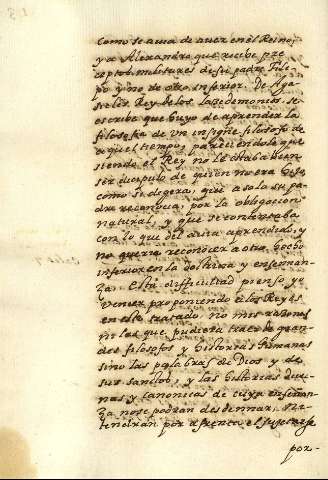 como se avia de aver en el Reino,
y a Alexandro que recibe pre
ceptos militares de su padre Fili-
po y no de otro inferior. De Aga
sicles Rey de los lacedemonios se
escribe que huyo de aprender la
filosofia de un insigne filosofo de
aquel tiempo, pareciendole que
siendo el Rey no le estaba bien
ser discipulo de quien no era hijo
como si digera, que a solo su pa-
dre reconocia, por la obligacion
natural, y que se contentaba
con lo que del avia aprendido, y
no queria reconocer a otro hecho
inferior en la doctrina y enseñan-
za. Esta difficultad pienso yo
vencer proponiendo a los Reyes
en este tratado no mis razones
ni las que pudiera traer de gran-
des filosofos y historias humanas
sino las palabras de Dios y de
sus sanctos, y las historias divi-
nas y canonicas de cuya enseñan-
za no se podran desdennar, ni
tendran por afrenta el sujetarse
por-